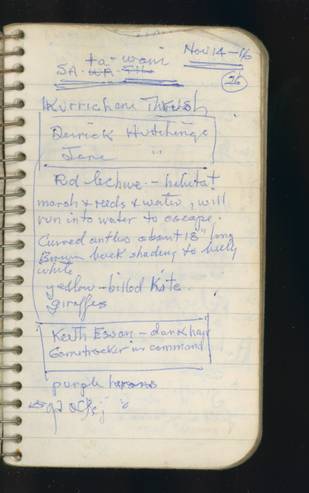 Nov 14-16
ta-wani
SA.
26
Kurrichane Thrush
Derrick Hutchings
Jane "
Rd lechwe - habitat
marsh & reeds & water, will
run into water to escape.
Curved antlers about 18" long
Brown back shading to belly
white
yellow-billed Kite
giraffes
Keith Esson - dark hair
Gametracker in command
purple herons